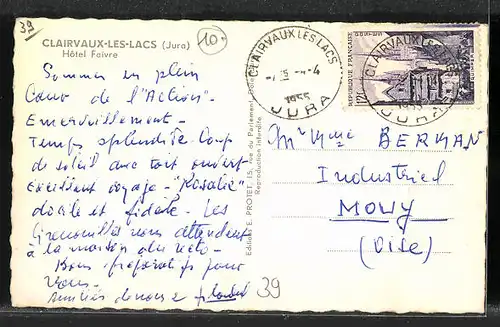 39
10.
CLAIRVAUX-LES-LACS (Jura)
Hôtel Faivre
Sommes en plein
Cœur de l'"Action".
Emerveillement -
Temps splendide Coup
de soleil avec toit ouvert
Excellent voyage - "Rosalie"
docile et fidèle. Les
Grenouilles nous attendent
à la maison du reto-
Bons préparatifs pour
vous -
amitiés de nous 2
Editions E. PROTET, 15, rue du Parlement,
Reproduction interdite
CLAIRVAUX LES LACS
4-4
1955
JURA
REPUBLIQUE FRANÇAISE
POSTES
12F
CLAIRVAUX LES LACS
1955
JURA
Mr Mme BERMAN
Industriel
MOUY
(Oise)
39